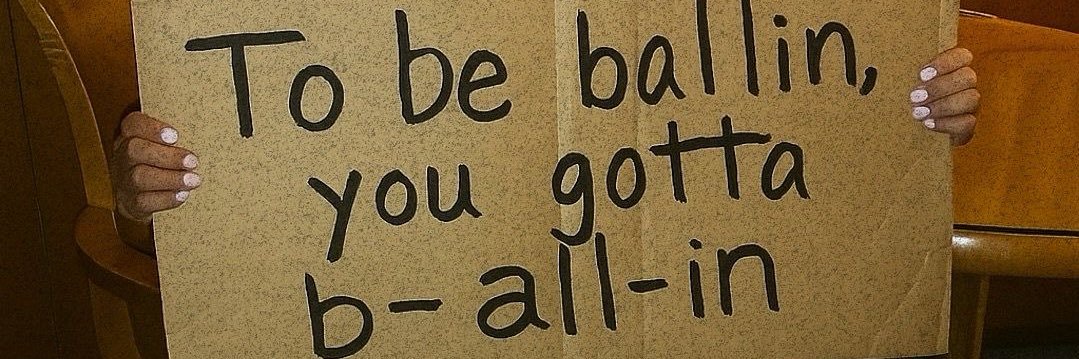 To be ballin,
you gotta
b-all-in